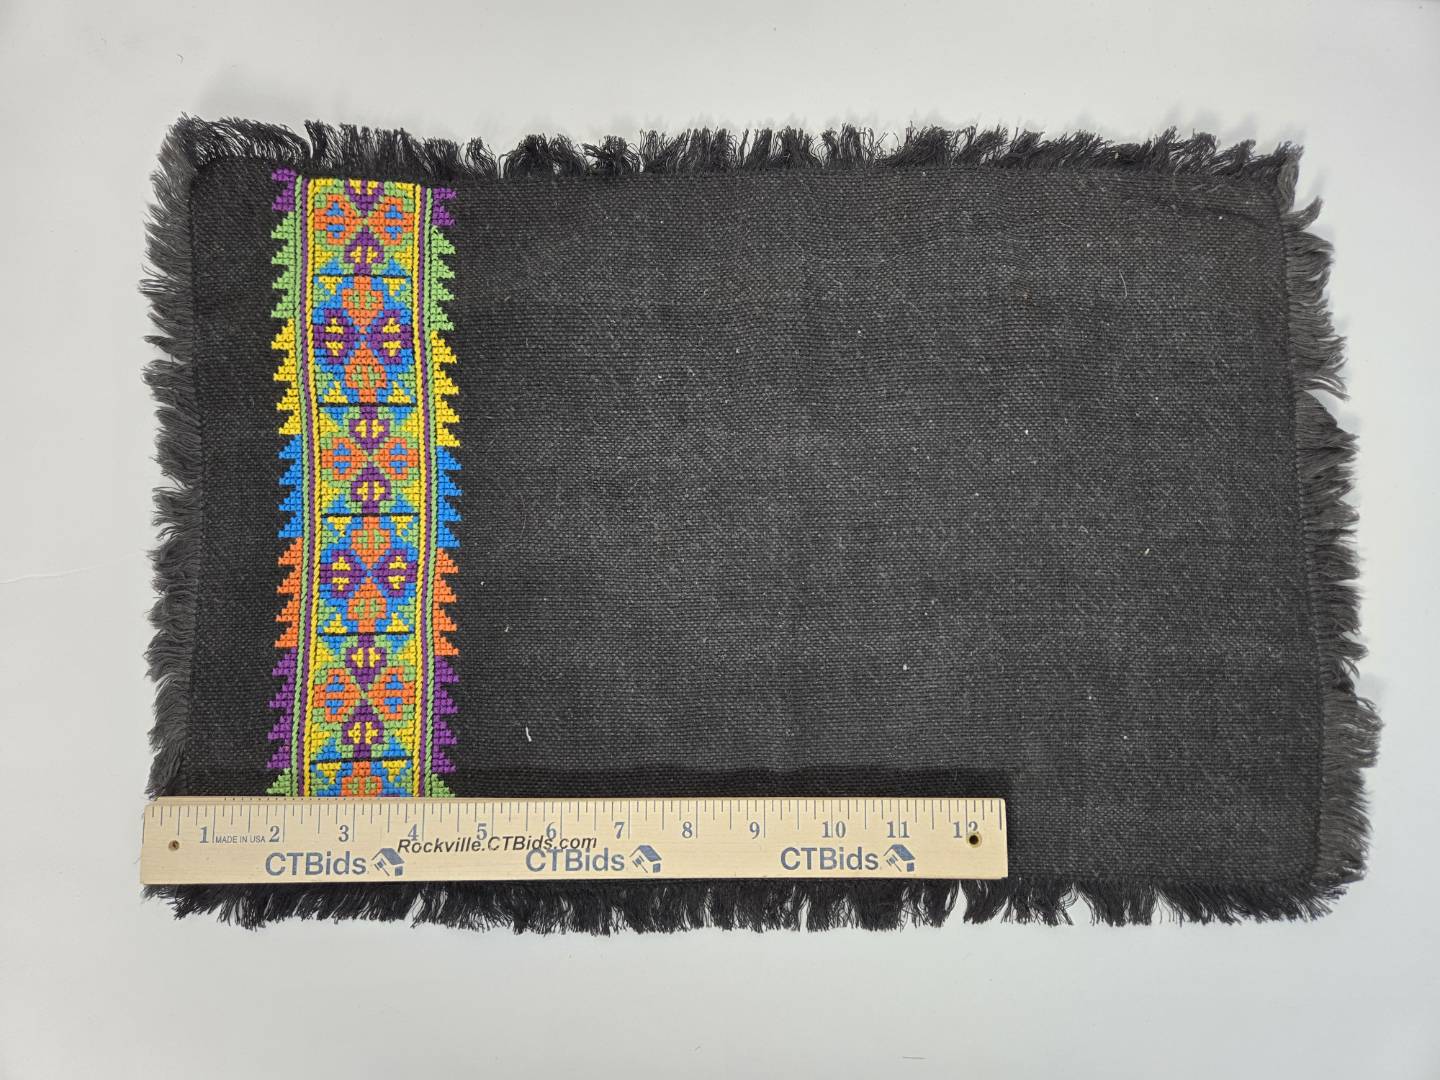 1 MADE IN USA 2 3 4 5 6 7 8 9 10 11 12
Rockville.CTBids.com
CTBids CTBids CTBids